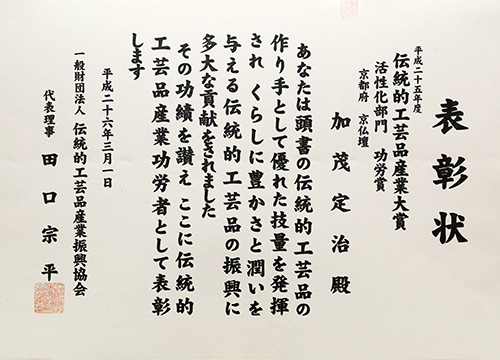 表彰状
平成二十五年度
伝統的工芸品産業大賞
活性化部門 功労賞
京都府 京仏壇
加茂定治殿
あなたは頭書の伝統的工芸品の
作り手として優れた技量を発揮
され くらしに豊かさと潤いを
与える伝統的工芸品の振興に
多大な貢献をされました
その功績を讃え ここに伝統的
工芸品産業功労者として表彰
します
平成二十六年三月一日
一般財団法人 伝統的工芸品産業振興協会
代表理事 田口宗平